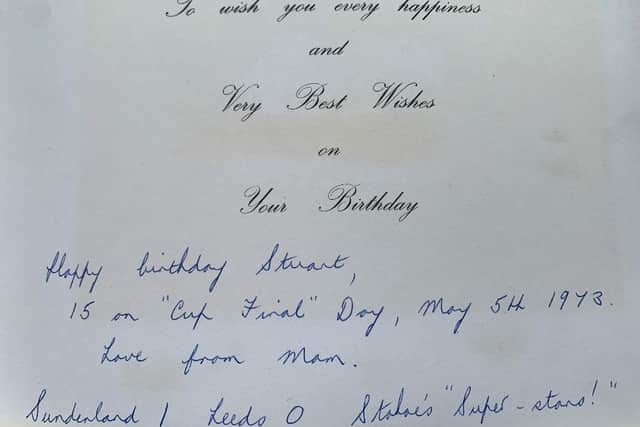 To wish you every happiness
and
Very Best Wishes
on
Your Birthday
Happy birthday Stuart,
15 on "Cup Final" Day, May 5th 1973.
Love from Mam.
Sunderland 1 Leeds 0 Stokoe's "Super-stars!"